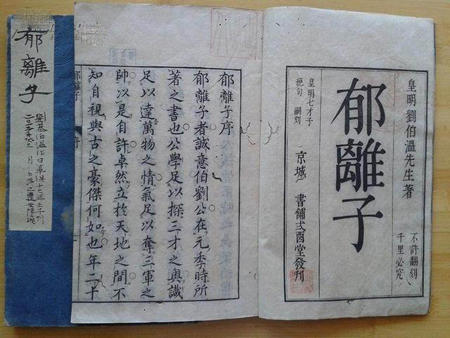 皇明劉伯溫先生著
不許翻刻
千里必究
郁離子
皇明七才子
絶句 嗣刻
京城 書舖弍酉堂發刊
郁離子序
郁離子者誠意伯劉公在元季時所
著之書也公學足以探三才之奧識
足以達萬物之情氣足以奪三軍之
帥以是自許卓然立於天地之間不
知自視與古之豪傑何如也年二十
郁離子